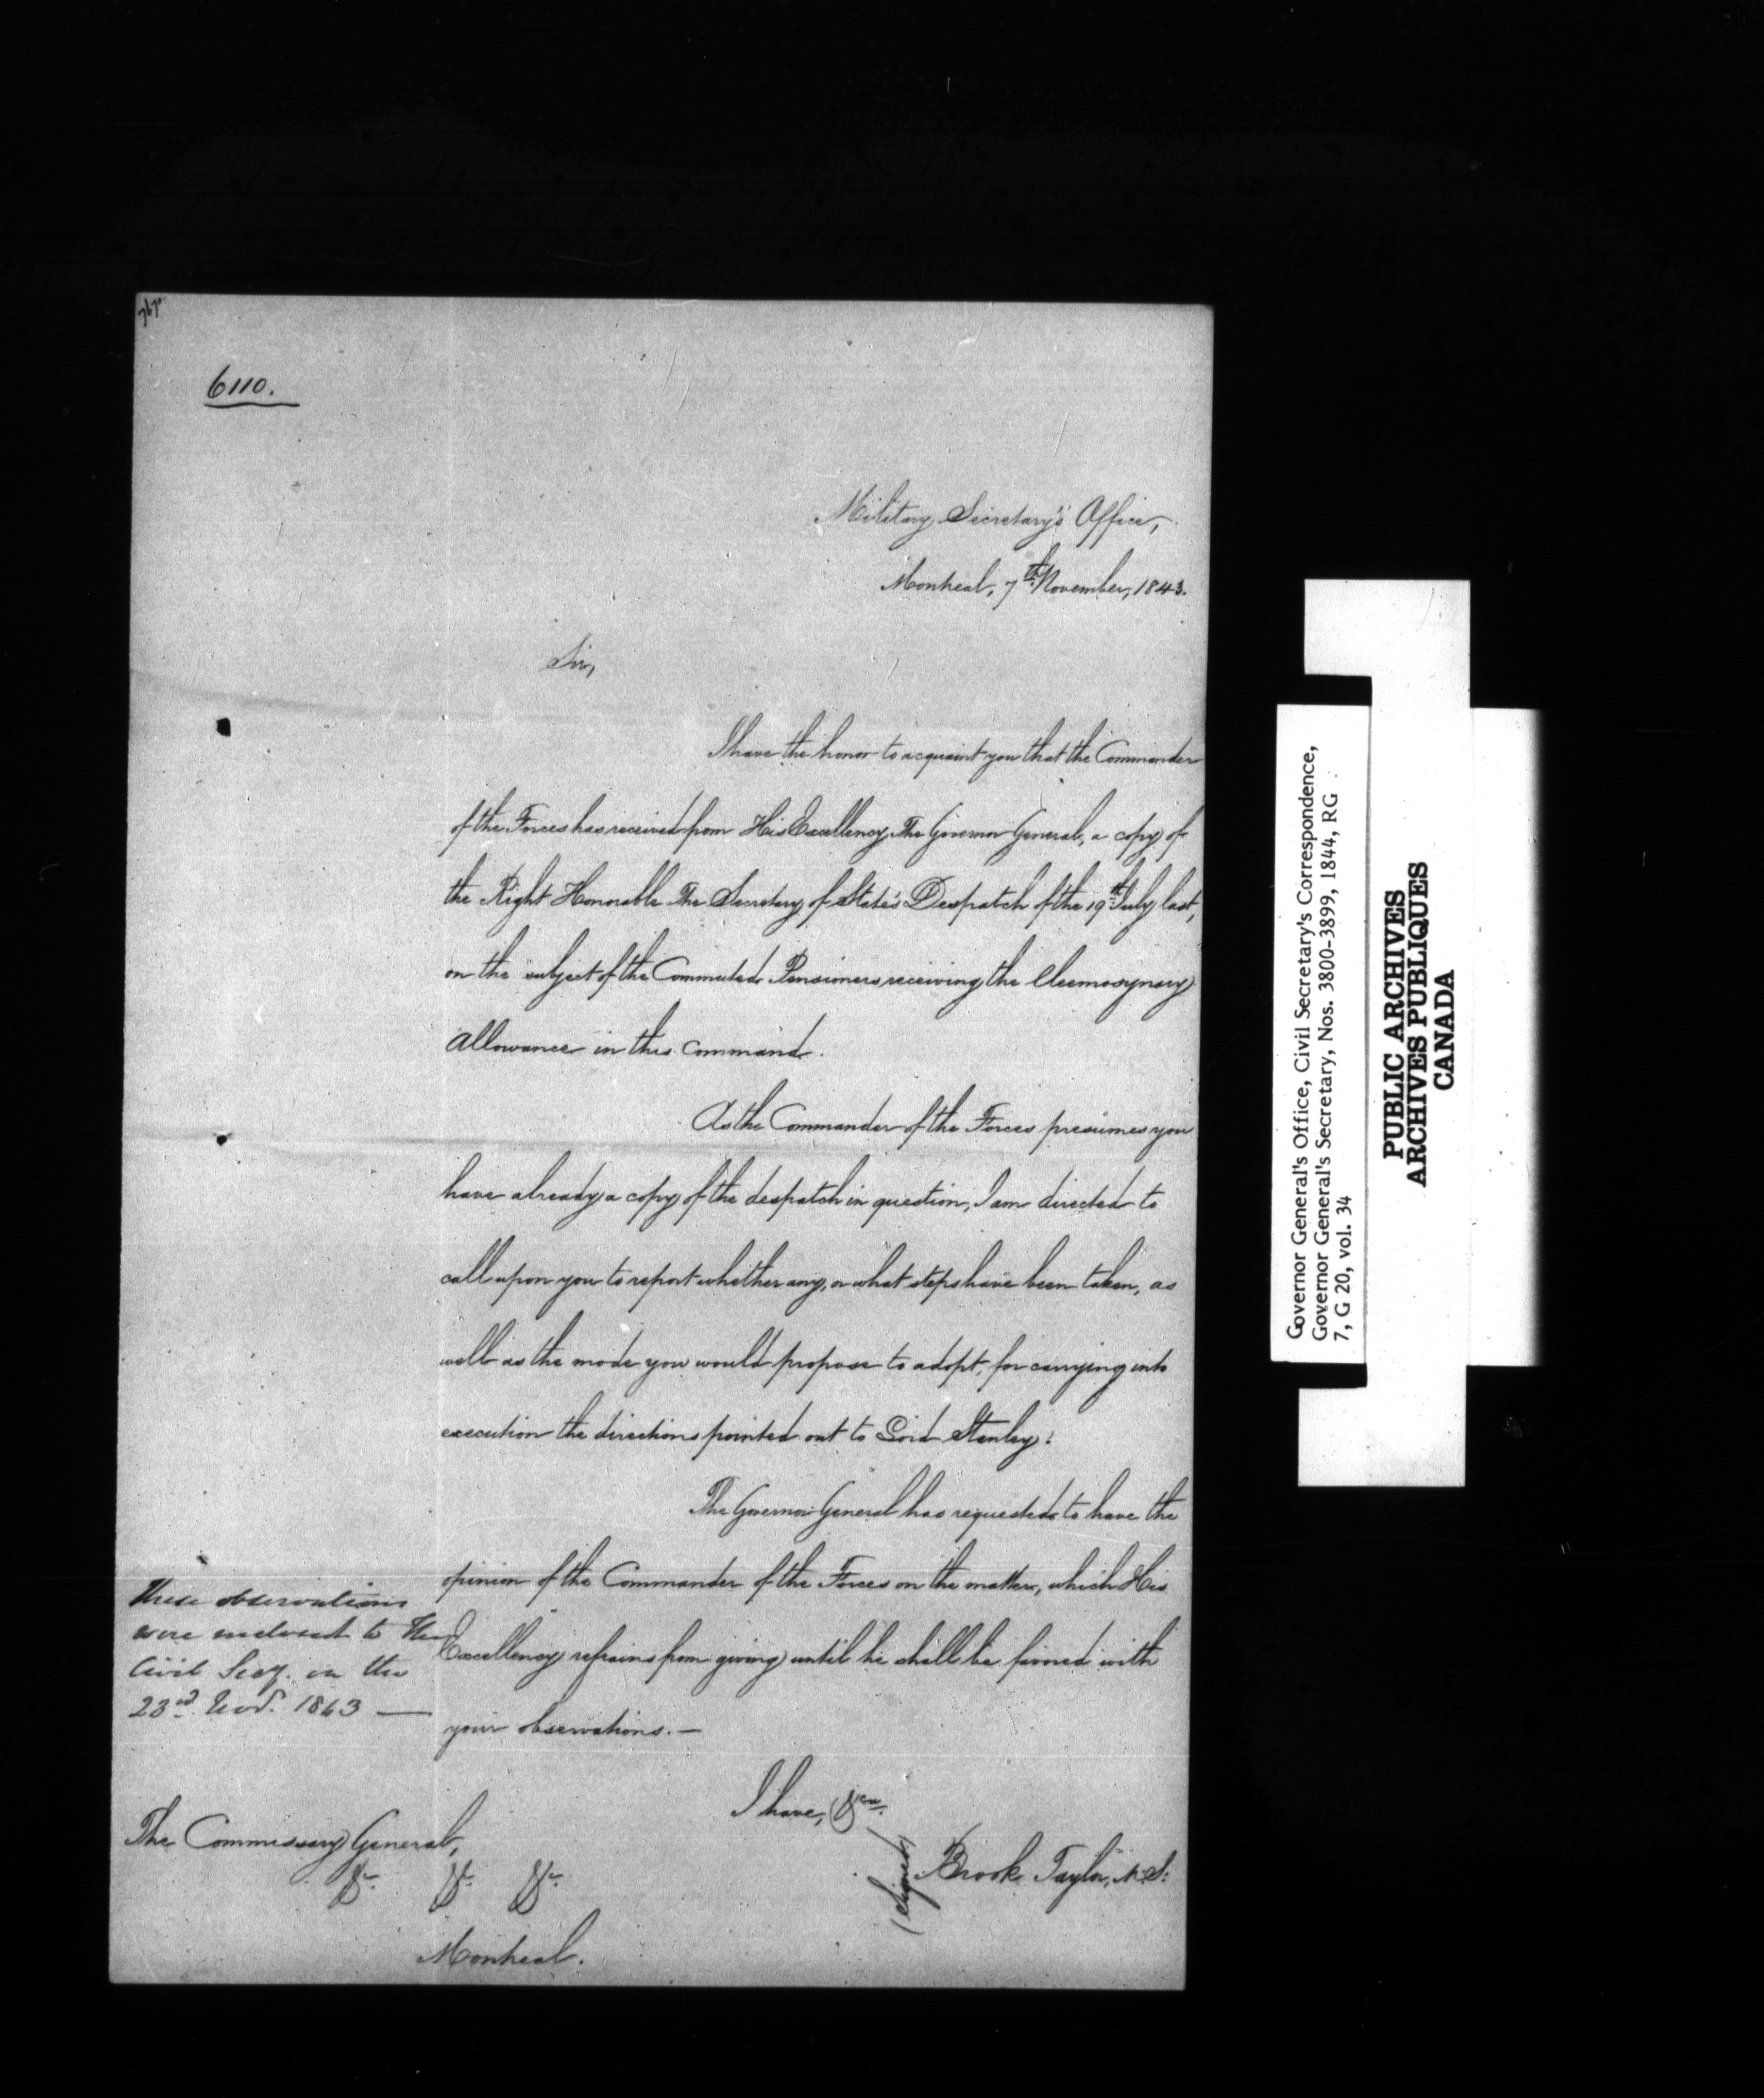 6110.
Military Secretary's Office,
Montreal, 7th November, 1843.
Sir,
I have the honor to acquaint you that the Commander
of the Forces has received from His Excellency The Governor General, a copy of
the Right Honorable The Secretary of State's Despatch of the 19th July last,
on the subject of the Commuted Pensioners receiving the Eleemosynary
allowance in this Command.
As the Commander of the Forces presumes you
have already a copy of the despatch in question, I am directed to
call upon you to report whether any, or what steps have been taken, as
well as the mode you would propose to adopt, for carrying into
execution the directions pointed out to Lord Stanley.
The Governor General has requested to have the
opinion of the Commander of the Forces on the matter, which His
Excellency refrains from giving until he shall be favored with
your observations. —
These observations
were enclosed to the
Civil Secy. on the
23rd Novr. 1843 —
I have, &c.
(signed) Brook Taylor, M.S.
The Commissary General,
&c. &c. &c.
Montreal.
Governor General's Office, Civil Secretary's Correspondence,
Governor General's Secretary, Nos. 3800-3899, 1844, RG
7, G 20, vol. 34
PUBLIC ARCHIVES
ARCHIVES PUBLIQUES
CANADA